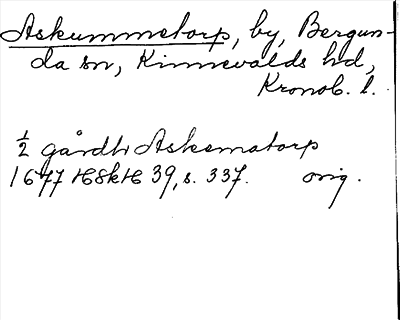 Askummetorp, by, Bergun-
da sn, Kinnevalds hd,
Kronob. l.
½ gårdh Askematorp
1677 HSkH 39, s. 337. orig.